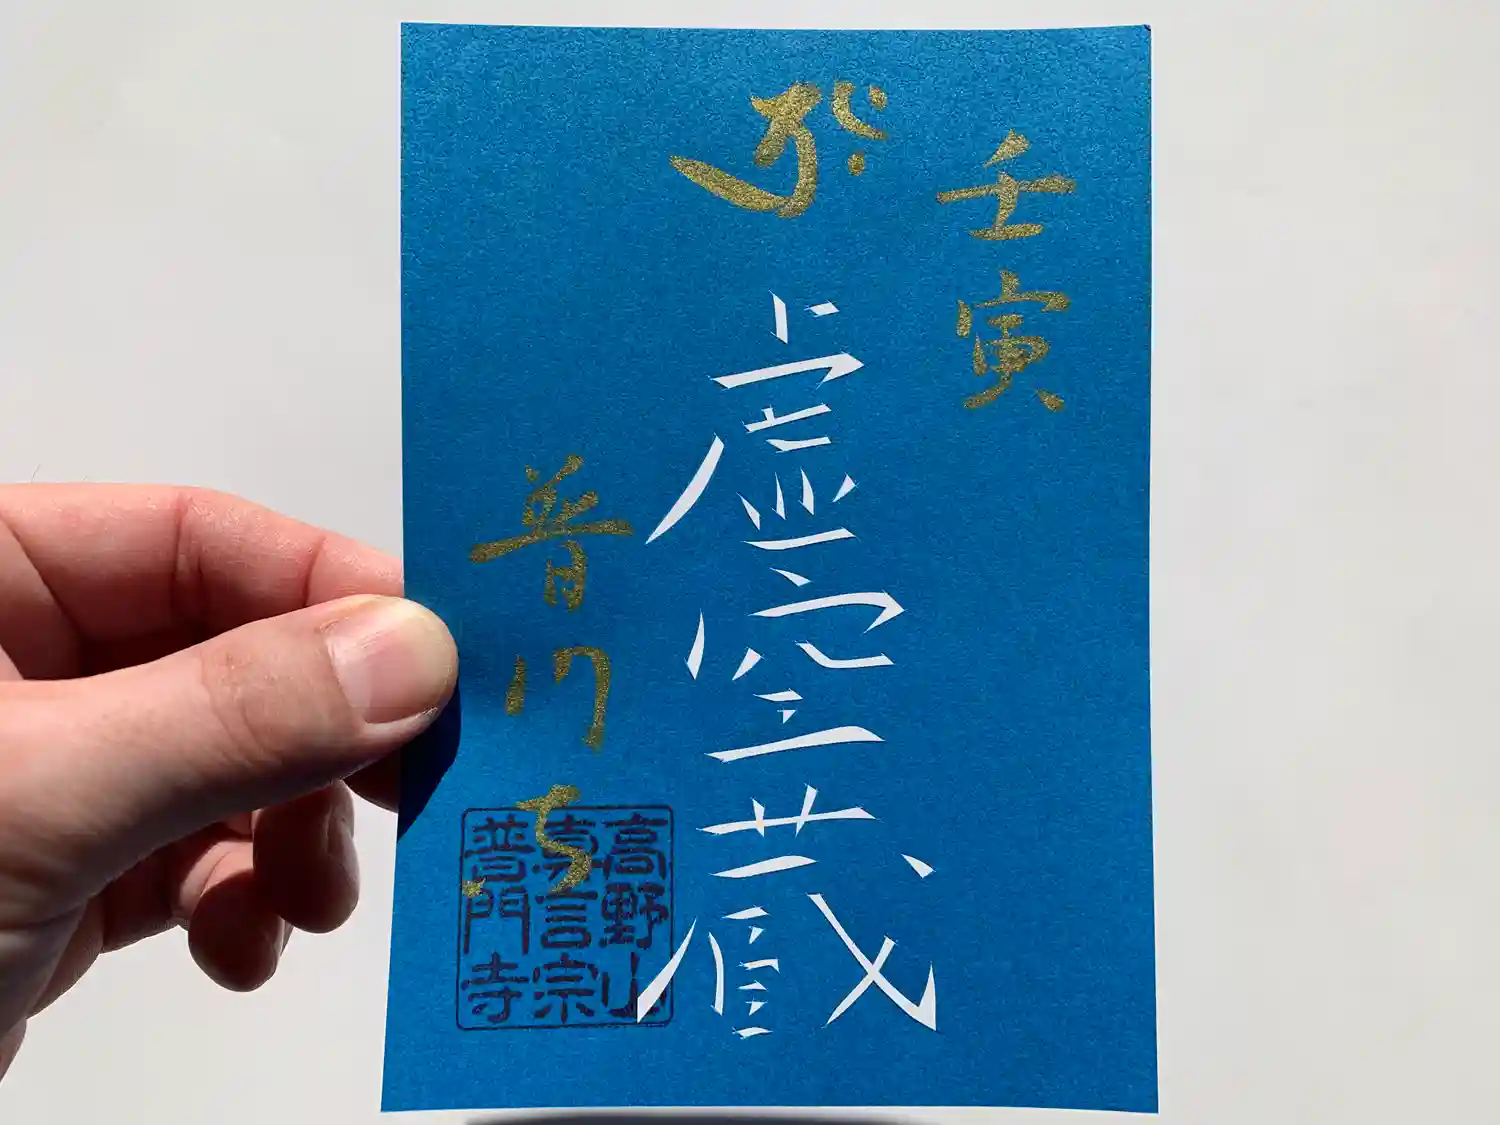 壬寅
虚空蔵
普門寺
高野山
真言宗
普門寺